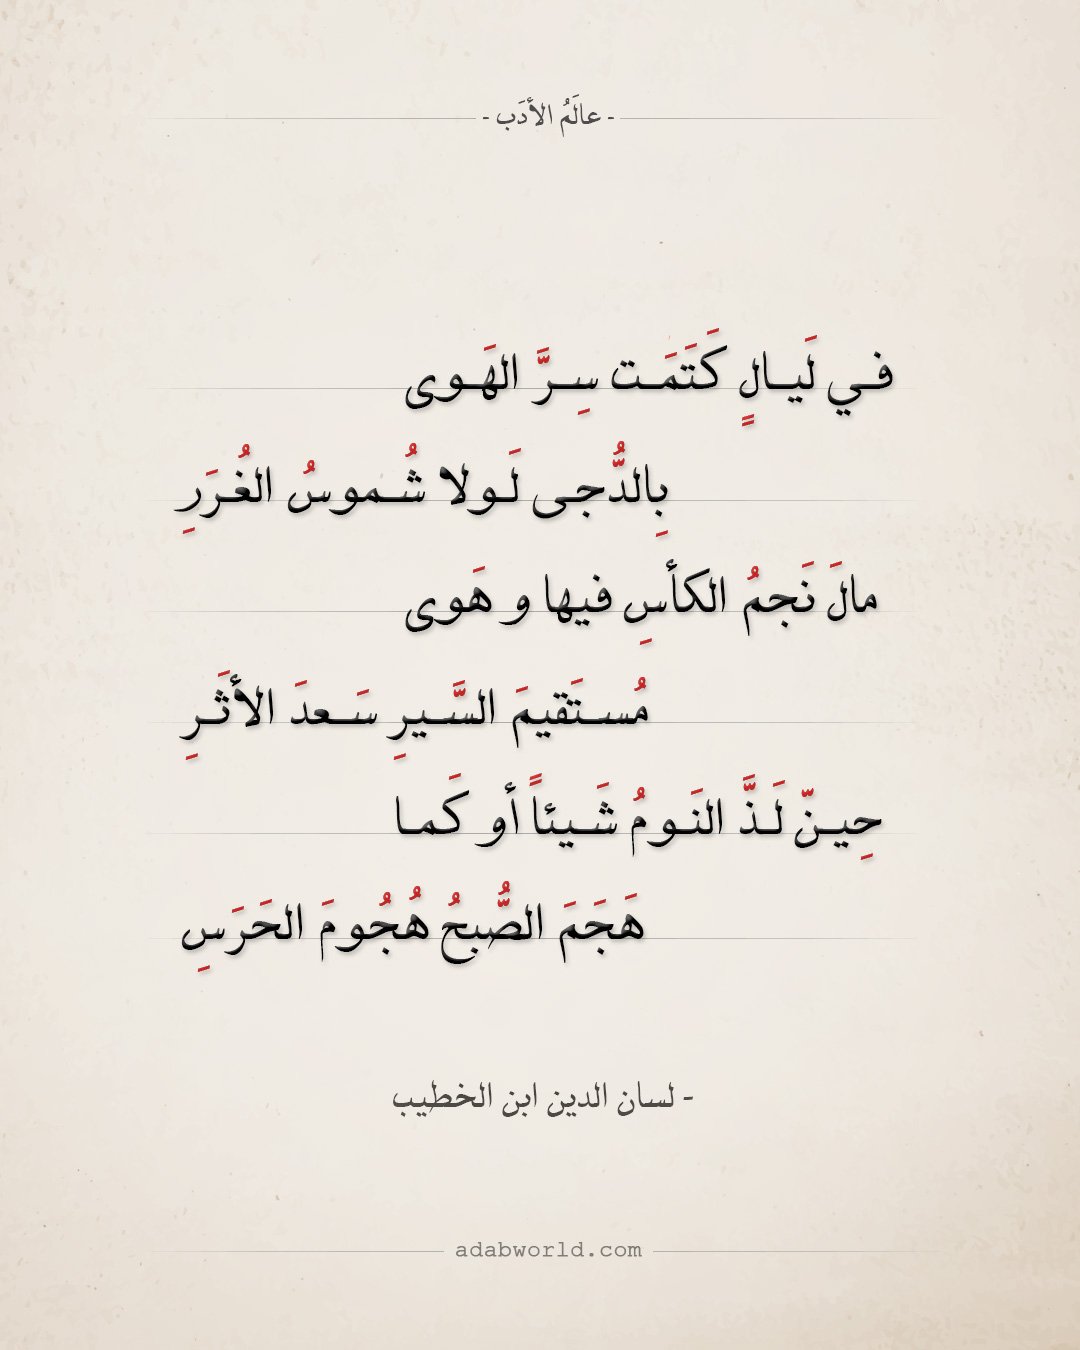 - عالَمُ الأدَب -
في لَيالٍ كَتَمَت سِرَّ الهَوى
بِالدُّجى لَولا شُموسُ الغُرَرِ
مالَ نَجمُ الكأسِ فيها و هَوى
مُستَقيمَ السَّيرِ سَعدَ الأثَرِ
حِينّ لَذَّ النَومُ شَيئاً أو كَما
هَجَمَ الصُّبحُ هُجُومَ الحَرَسِ
- لسان الدين ابن الخطيب
adabworld.com